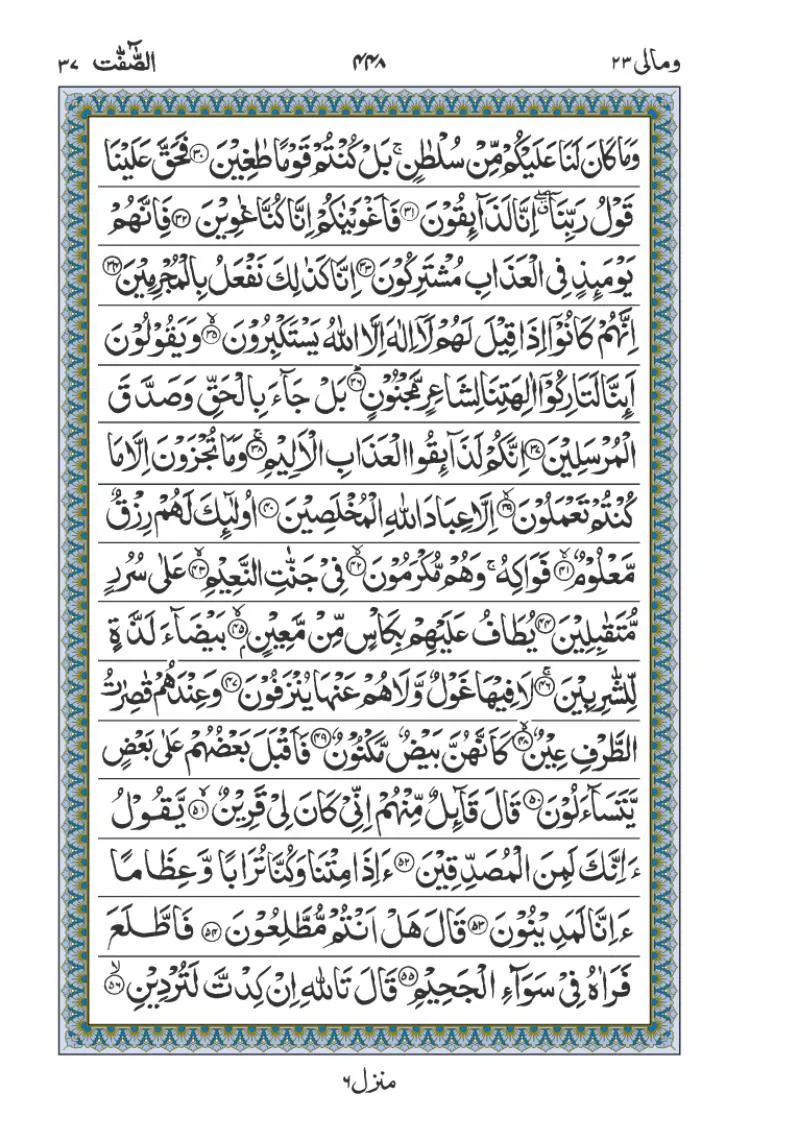 ومالی ۲۳ ۴۴۸ الصّٰٓفّٰت ۳۷
وَمَا كَانَ لَنَا عَلَيْكُمْ مِّنْ سُلْطٰنٍ ۚ بَلْ كُنْتُمْ قَوْمًا طٰغِيْنَ ﴿۳۰﴾ فَحَقَّ عَلَيْنَا
قَوْلُ رَبِّنَآ ۖۗ اِنَّا لَذَآىِٕقُوْنَ ﴿۳۱﴾ فَاَغْوَيْنٰكُمْ اِنَّا كُنَّا غٰوِيْنَ ﴿۳۲﴾ فَاِنَّهُمْ
يَوْمَىِٕذٍ فِى الْعَذَابِ مُشْتَرِكُوْنَ ﴿۳۳﴾ اِنَّا كَذٰلِكَ نَفْعَلُ بِالْمُجْرِمِيْنَ ﴿۳۴﴾
اِنَّهُمْ كَانُوْٓا اِذَا قِيْلَ لَهُمْ لَآ اِلٰهَ اِلَّا اللّٰهُ يَسْتَكْبِرُوْنَ ﴿ۙ۳۵﴾ وَيَقُوْلُوْنَ
اَىِٕنَّا لَتَارِكُوْٓا اٰلِهَتِنَا لِشَاعِرٍ مَّجْنُوْنٍ ﴿ؕ۳۶﴾ بَلْ جَآءَ بِالْحَقِّ وَصَدَّقَ
الْمُرْسَلِيْنَ ﴿۳۷﴾ اِنَّكُمْ لَذَآىِٕقُوا الْعَذَابِ الْاَلِيْمِ ﴿ۚ۳۸﴾ وَمَا تُجْزَوْنَ اِلَّا مَا
كُنْتُمْ تَعْمَلُوْنَ ﴿ۙ۳۹﴾ اِلَّا عِبَادَ اللّٰهِ الْمُخْلَصِيْنَ ﴿۴۰﴾ اُولٰٓىِٕكَ لَهُمْ رِزْقٌ
مَّعْلُوْمٌ ﴿ۙ۴۱﴾ فَوَاكِهُ ۚ وَهُمْ مُّكْرَمُوْنَ ﴿ۙ۴۲﴾ فِىْ جَنّٰتِ النَّعِيْمِ ﴿ۙ۴۳﴾ عَلٰى سُرُرٍ
مُّتَقٰبِلِيْنَ ﴿۴۴﴾ يُطَافُ عَلَيْهِمْ بِكَاْسٍ مِّنْ مَّعِيْنٍ ﴿ۙ۴۵﴾ بَيْضَآءَ لَذَّةٍ
لِّلشّٰرِبِيْنَ ﴿ۚ۴۶﴾ لَا فِيْهَا غَوْلٌ وَّلَا هُمْ عَنْهَا يُنْزَفُوْنَ ﴿۴۷﴾ وَعِنْدَهُمْ قٰصِرٰتُ
الطَّرْفِ عِيْنٌ ﴿ۙ۴۸﴾ كَاَنَّهُنَّ بَيْضٌ مَّكْنُوْنٌ ﴿۴۹﴾ فَاَقْبَلَ بَعْضُهُمْ عَلٰى بَعْضٍ
يَّتَسَآءَلُوْنَ ﴿۵۰﴾ قَالَ قَآىِٕلٌ مِّنْهُمْ اِنِّىْ كَانَ لِىْ قَرِيْنٌ ﴿ۙ۵۱﴾ يَّقُوْلُ
ءَاِنَّكَ لَمِنَ الْمُصَدِّقِيْنَ ﴿۵۲﴾ ءَاِذَا مِتْنَا وَكُنَّا تُرَابًا وَّعِظَامًا
ءَاِنَّا لَمَدِيْنُوْنَ ﴿۵۳﴾ قَالَ هَلْ اَنْتُمْ مُّطَّلِعُوْنَ ﴿۵۴﴾ فَاطَّلَعَ
فَرَاٰهُ فِىْ سَوَآءِ الْجَحِيْمِ ﴿۵۵﴾ قَالَ تَاللّٰهِ اِنْ كِدْتَّ لَتُرْدِيْنِ ﴿ۙ۵۶﴾
منزل ۶